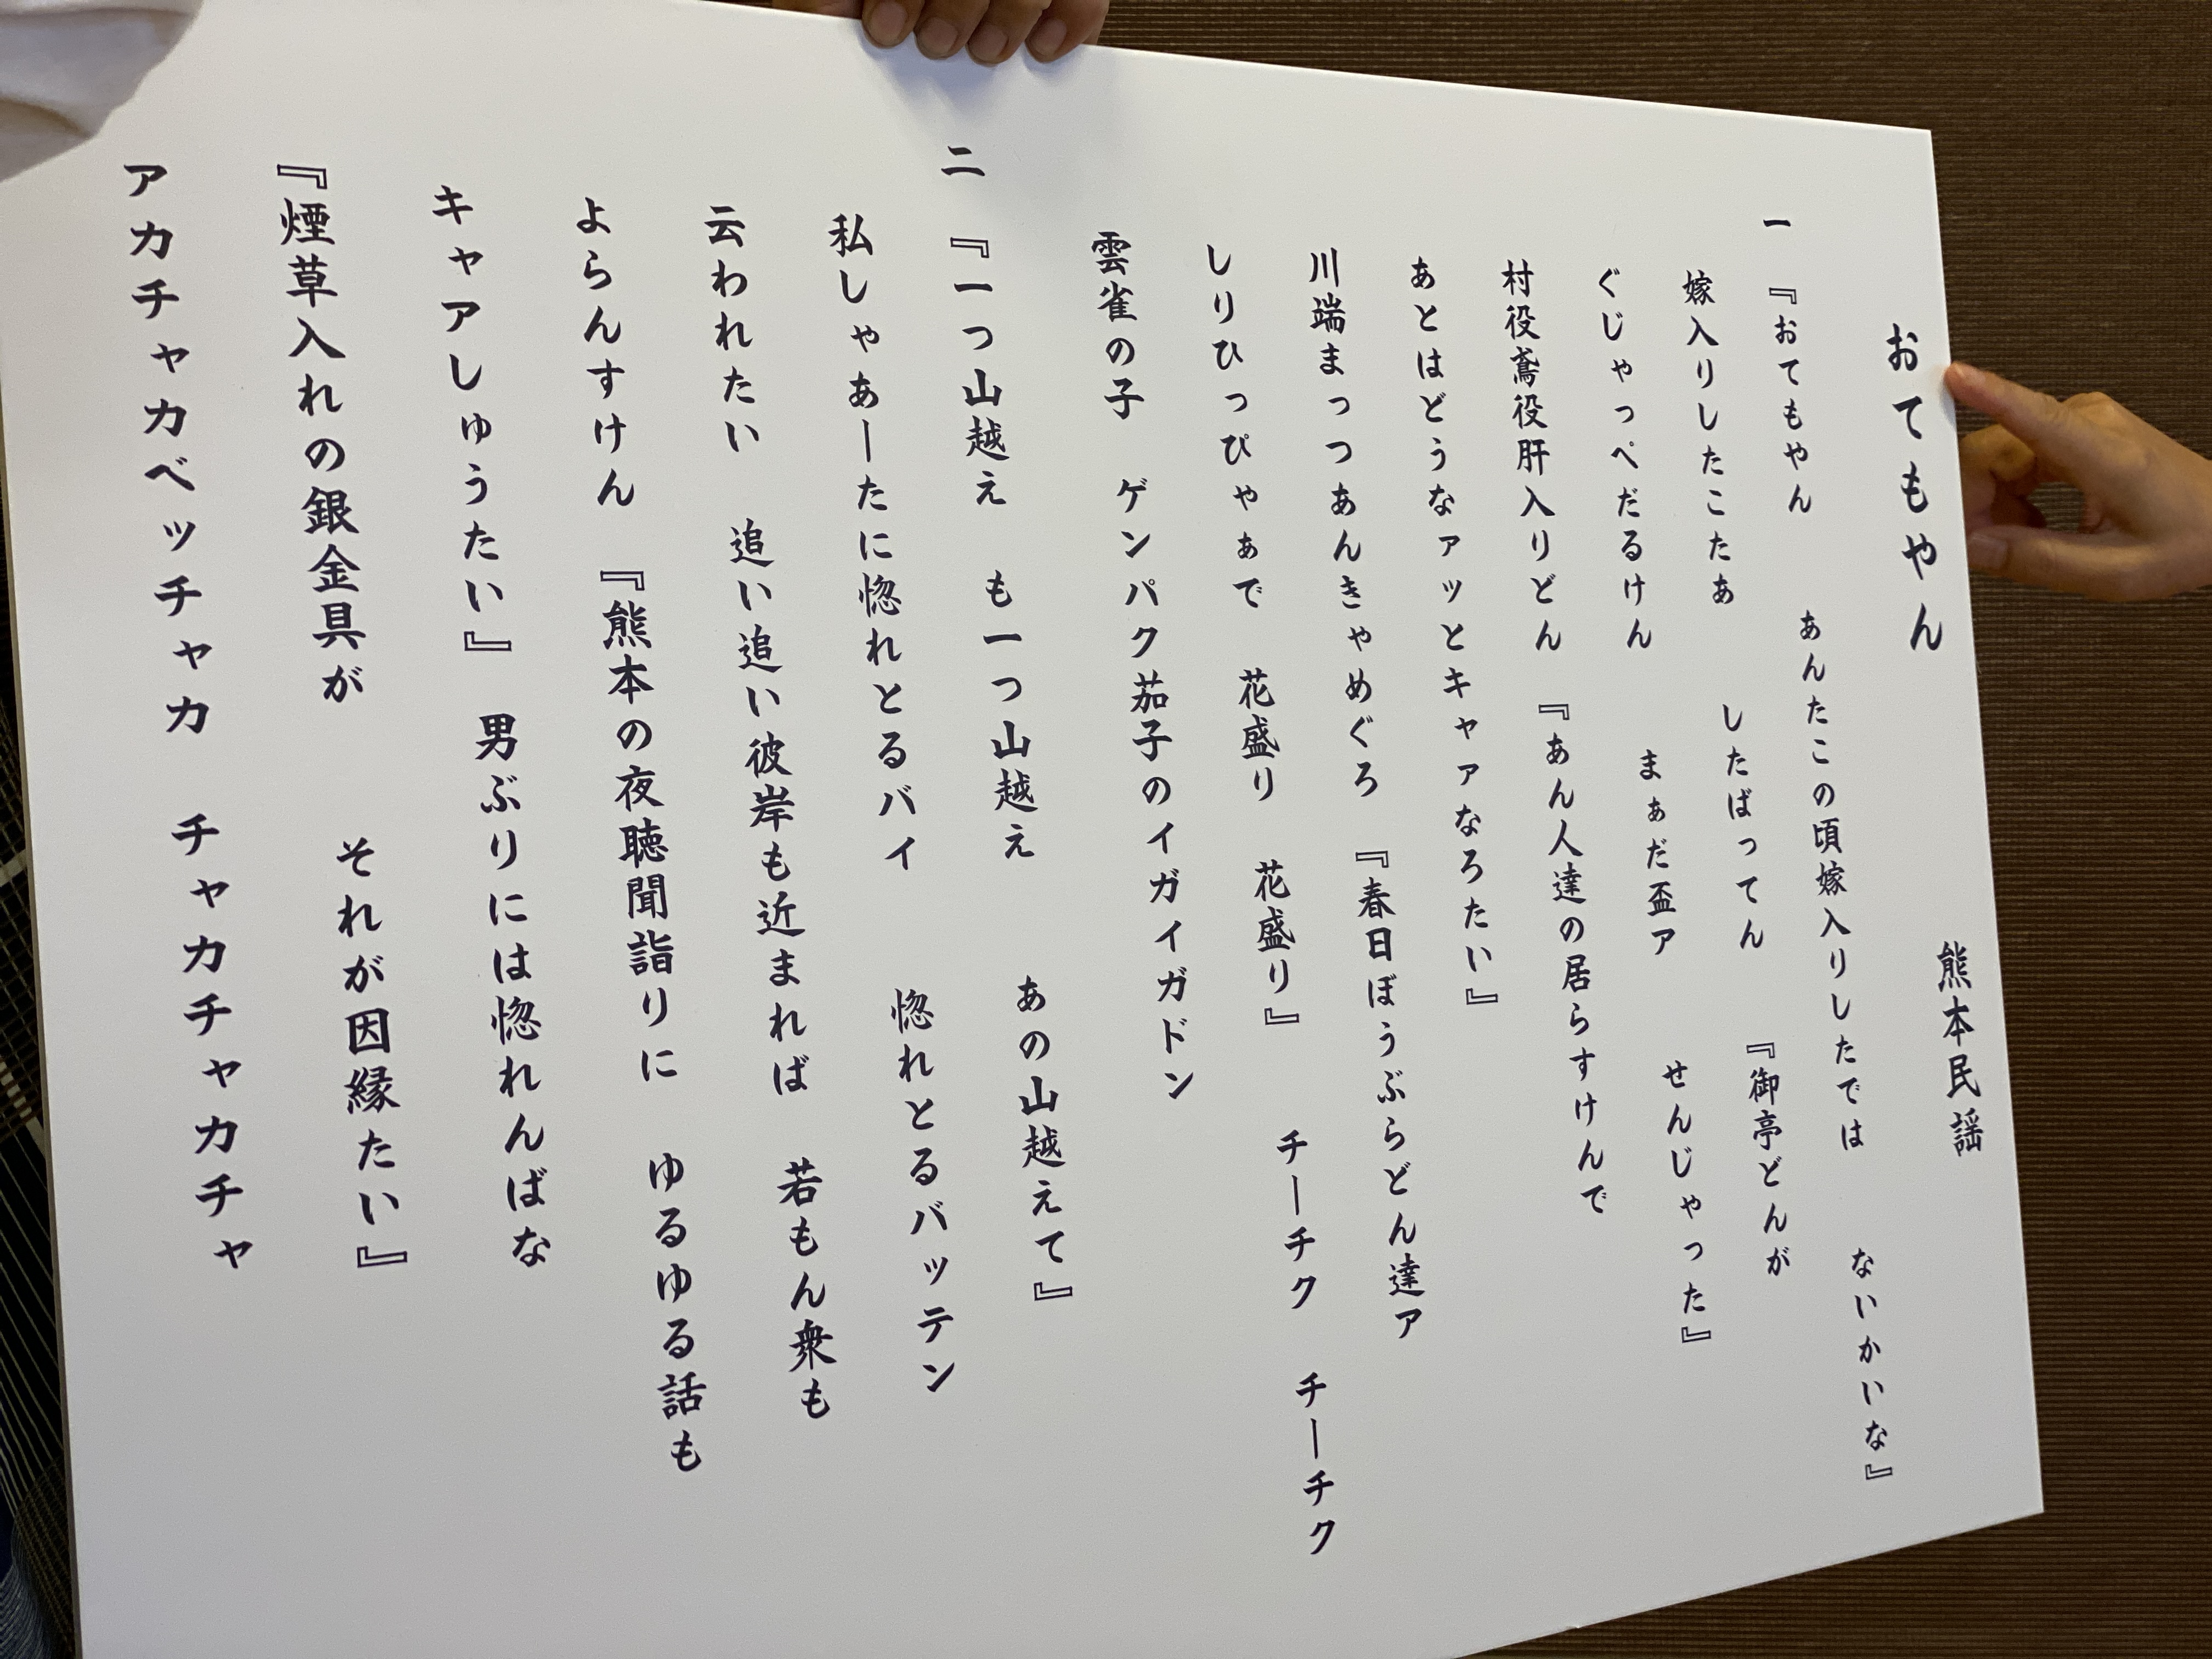 おてもやん
熊本民謡
一 『おてもやん あんたこの頃嫁入りしたでは ないかいな』
嫁入りしたこたあ したばってん 『御亭どんが
ぐじゃっぺだるけん まぁだ盃ア せんじゃった』
村役鳶役肝入りどん 『あん人達の居らすけんで
あとはどうなァッとキャアなろたい』
川端まっつあんきゃめぐろ 『春日ぼうぶらどん達ア
しりひっぴゃぁで 花盛り 花盛り』 チーチク チーチク
雲雀の子 ゲンパク茄子のイガイガドン
二 『一つ山越え も一つ山越え あの山越えて』
私しゃあーたに惚れとるバイ 惚れとるバッテン
云われたい 追い追い彼岸も近まれば 若もん衆も
よらんすけん 『熊本の夜聴聞詣りに ゆるゆる話も
キャアしゅうたい』 男ぶりには惚れんばな
『煙草入れの銀金具が それが因縁たい』
アカチャカベッチャカ チャカチャカチャ